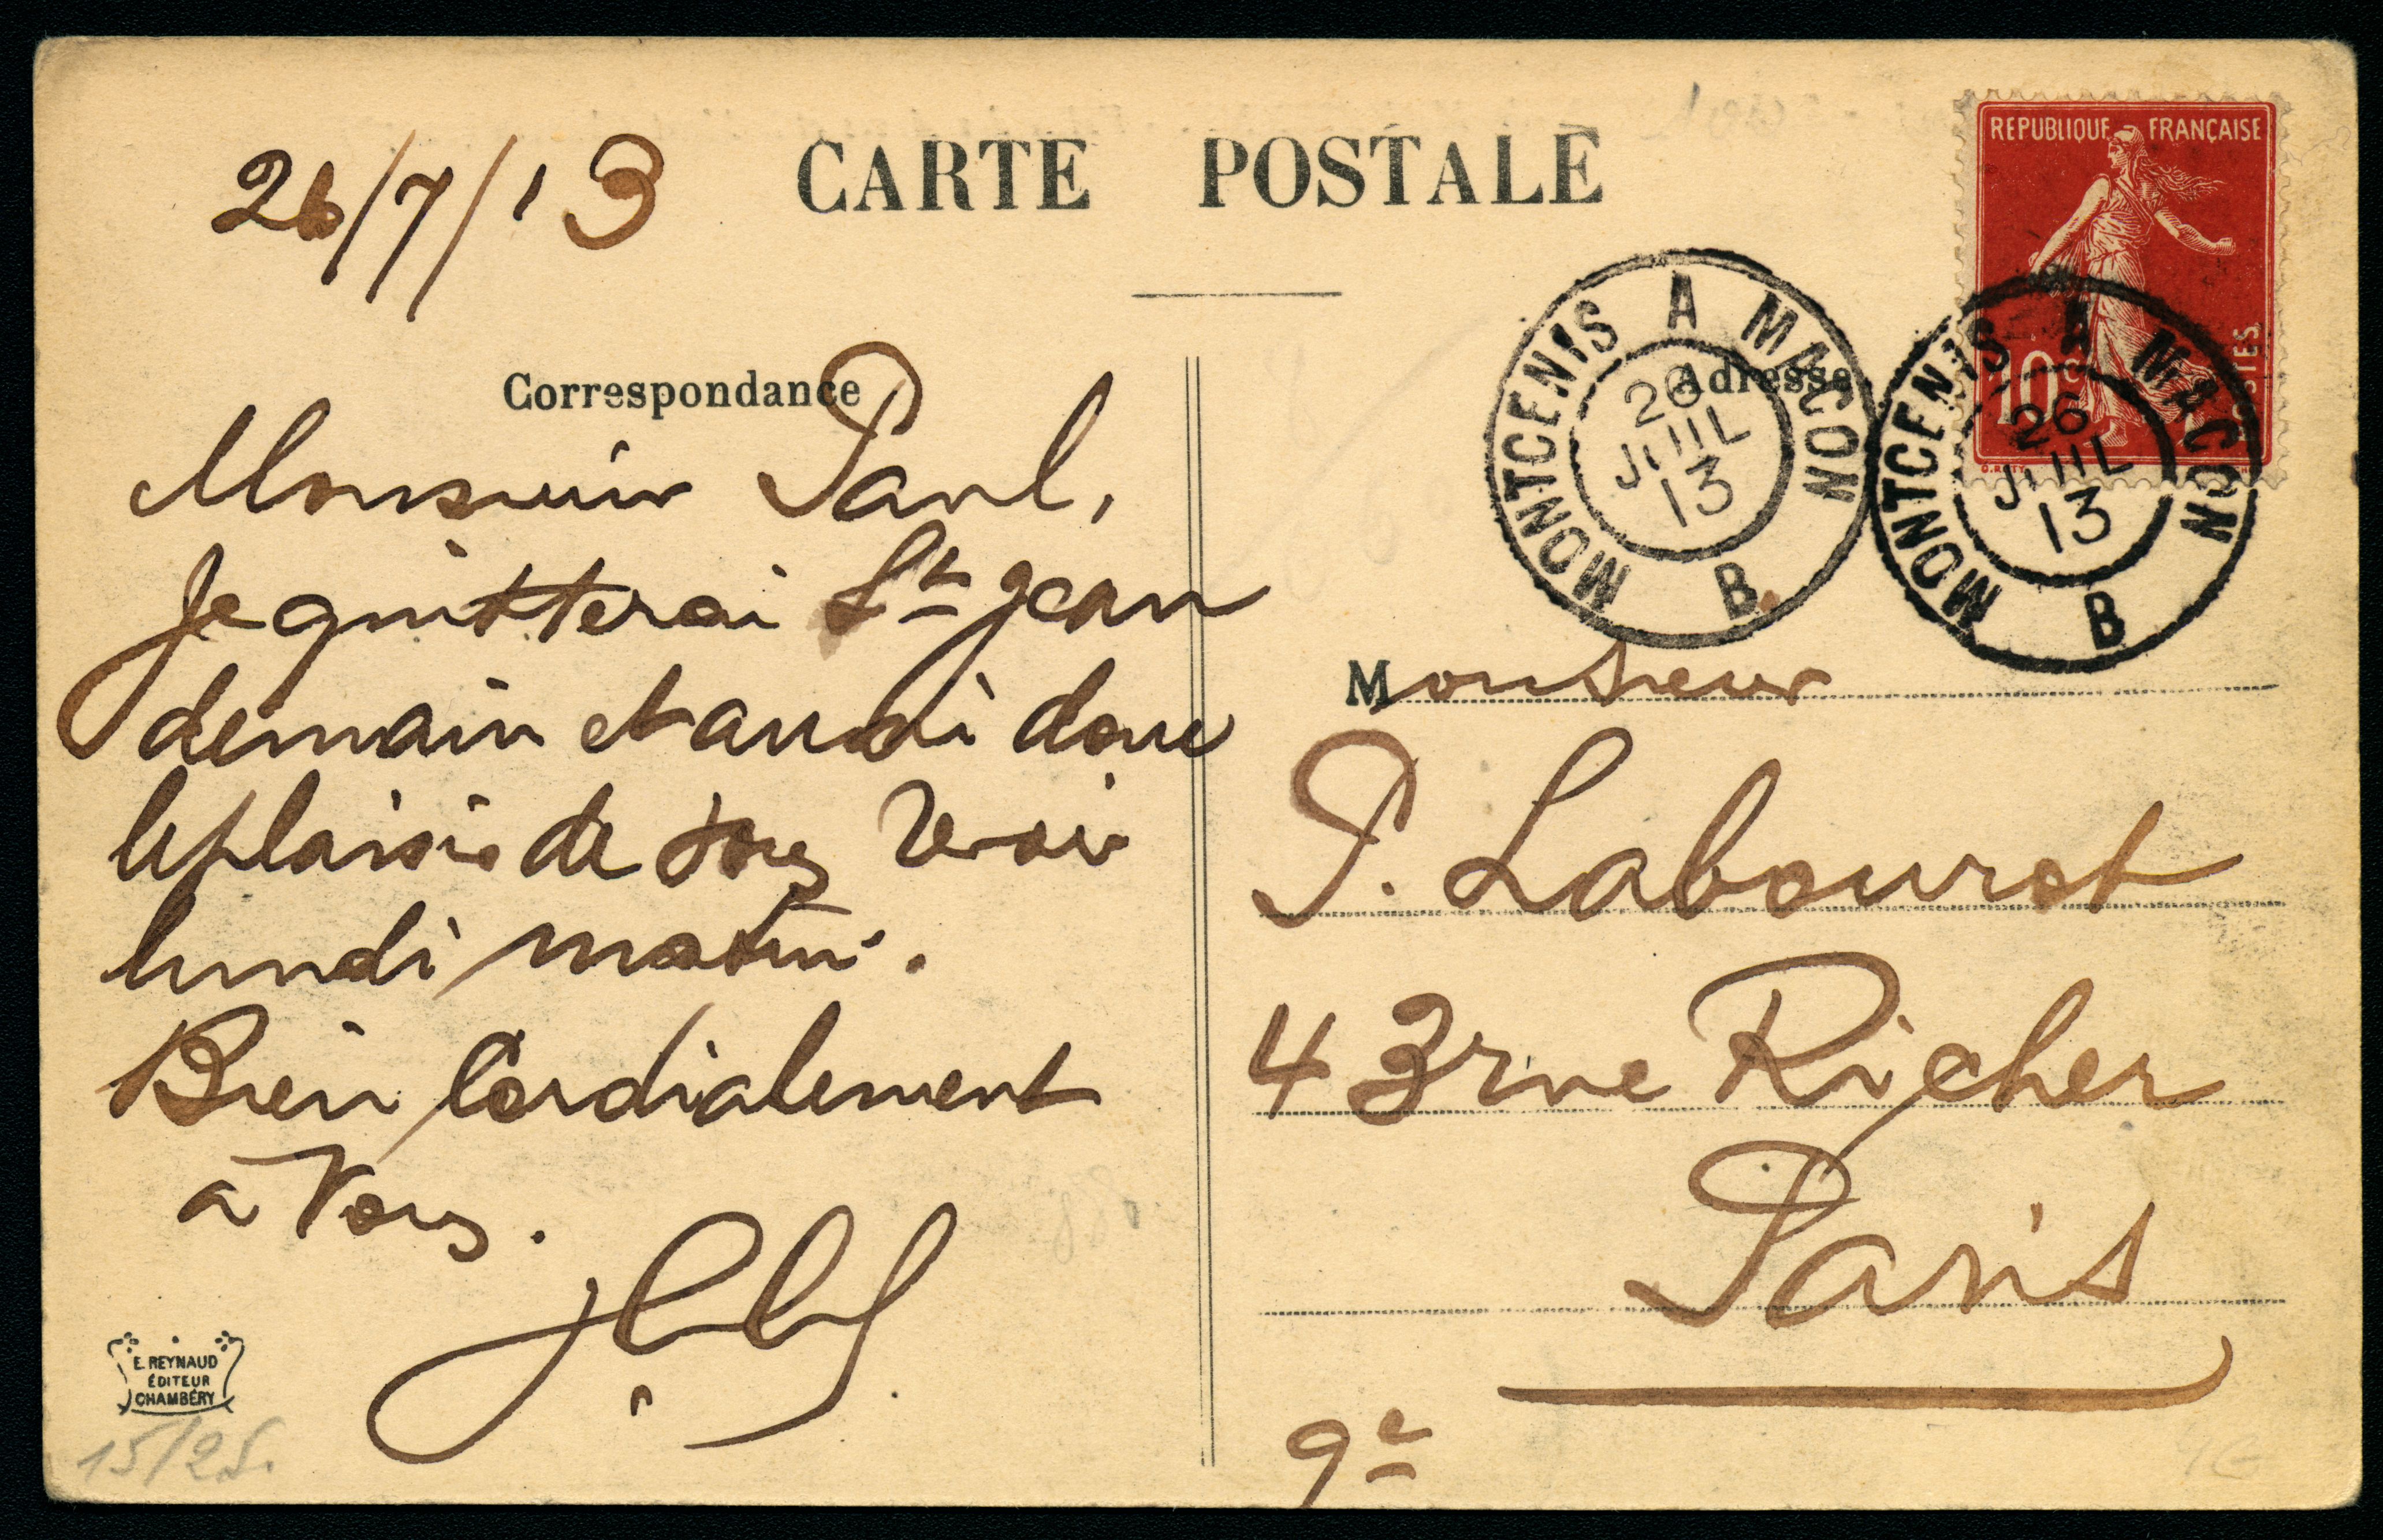 26/7/13
CARTE POSTALE
REPUBLIQUE FRANÇAISE
10c
POSTES
MONTCENIS A MACON
26
JUIL
13
B.
MONTCENIS A MACON
26
JUIL
13
B
Correspondance
Adresse
Monsieur Paul,
Je quitterai St Jean
demain et aurai donc
le plaisir de vous revoir
lundi matin.
Bien Cordialement
à Vous.
Monsieur
P. Labourot
43 rue Richer
Paris
9e
E. REYNAUD
ÉDITEUR
CHAMBÉRY
15/25.